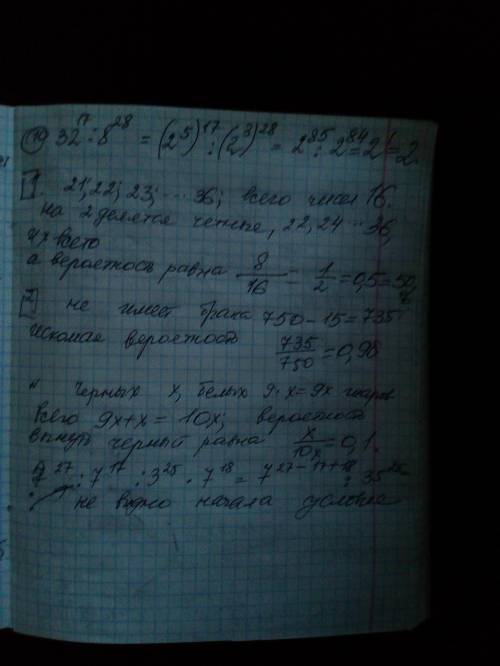 19 32¹⁷ : 8²⁸ = (2⁵)¹⁷ : (2³)²⁸ = 2⁸⁵ : 2⁸⁴ = 2¹ = 2.
1. 21; 22; 23; ... 36; всего чисел 16.
на 2 делятся четные, 22, 24 ... 36,
их всего
а вероятность равна 8/16 = 1/2 = 0,5 = 50%
2 не имеет брака 750 - 15 = 735
Искомая вероятность 735/750 = 0,98
черных x, белых 9·x = 9x шаров
Всего 9x + x = 10x; вероятность
вынуть черный равна x/10x = 0,1.
7²⁷ : 7¹⁷ : 3²⁵ · 7¹⁸ = 7²⁷⁻¹⁷⁺¹⁸ : 35²⁵
не видно начала условие